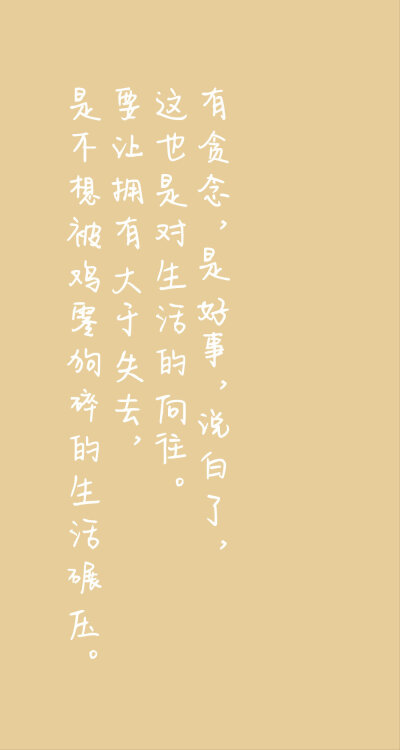 有贪念，是好事，说白了，
这也是对生活的向往。
要让拥有大于失去，
是不想被鸡零狗碎的生活碾压。